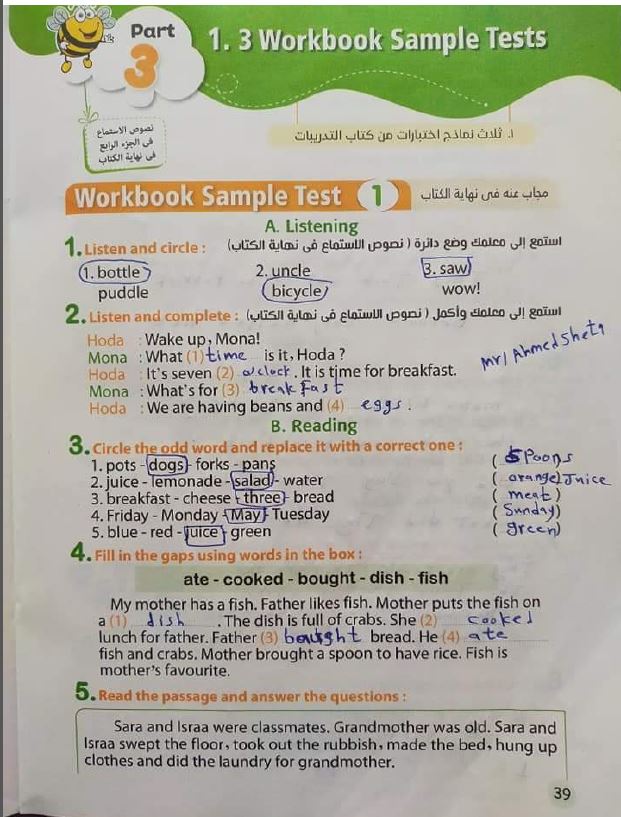 Part
3
1. 3 Workbook Sample Tests
نصوص الاستماع
فى الجزء الرابع
فى نهاية الكتاب
١. ثلاث نماذج اختبارات من كتاب التدريبات
Workbook Sample Test 1
مجاب عنه فى نهاية الكتاب
A. Listening
1. Listen and circle : استمع إلى معلمك وضع دائرة ( نصوص الاستماع فى نهاية الكتاب)
1. bottle 2. uncle 3. saw
puddle bicycle wow!
2. Listen and complete : استمع إلى معلمك وأكمل ( نصوص الاستماع فى نهاية الكتاب)
Hoda : Wake up, Mona!
Mona : What (1) time is it, Hoda ?
Mr/ Ahmed Sheta
Hoda : It's seven (2) o'clock. It is time for breakfast.
Mona : What's for (3) breakfast
Hoda : We are having beans and (4) eggs .
B. Reading
3. Circle the odd word and replace it with a correct one :
1. pots - dogs - forks - pans ( spoons
2. juice - lemonade - salad - water ( orange) Juice
3. breakfast - cheese - three - bread ( meat )
4. Friday - Monday - May - Tuesday ( Sunday)
5. blue - red - juice - green ( green)
4. Fill in the gaps using words in the box :
ate - cooked - bought - dish - fish
My mother has a fish. Father likes fish. Mother puts the fish on
a (1) dish . The dish is full of crabs. She (2) cooked
lunch for father. Father (3) bought bread. He (4) ate
fish and crabs. Mother brought a spoon to have rice. Fish is
mother's favourite.
5. Read the passage and answer the questions :
Sara and Israa were classmates. Grandmother was old. Sara and
Israa swept the floor, took out the rubbish, made the bed, hung up
clothes and did the laundry for grandmother.
39